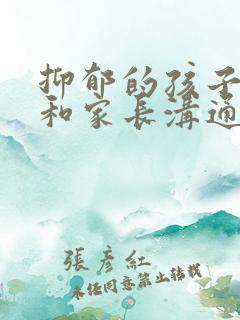 抑郁的孩子
和家长溝通
張彦紅
未经同意禁止转载